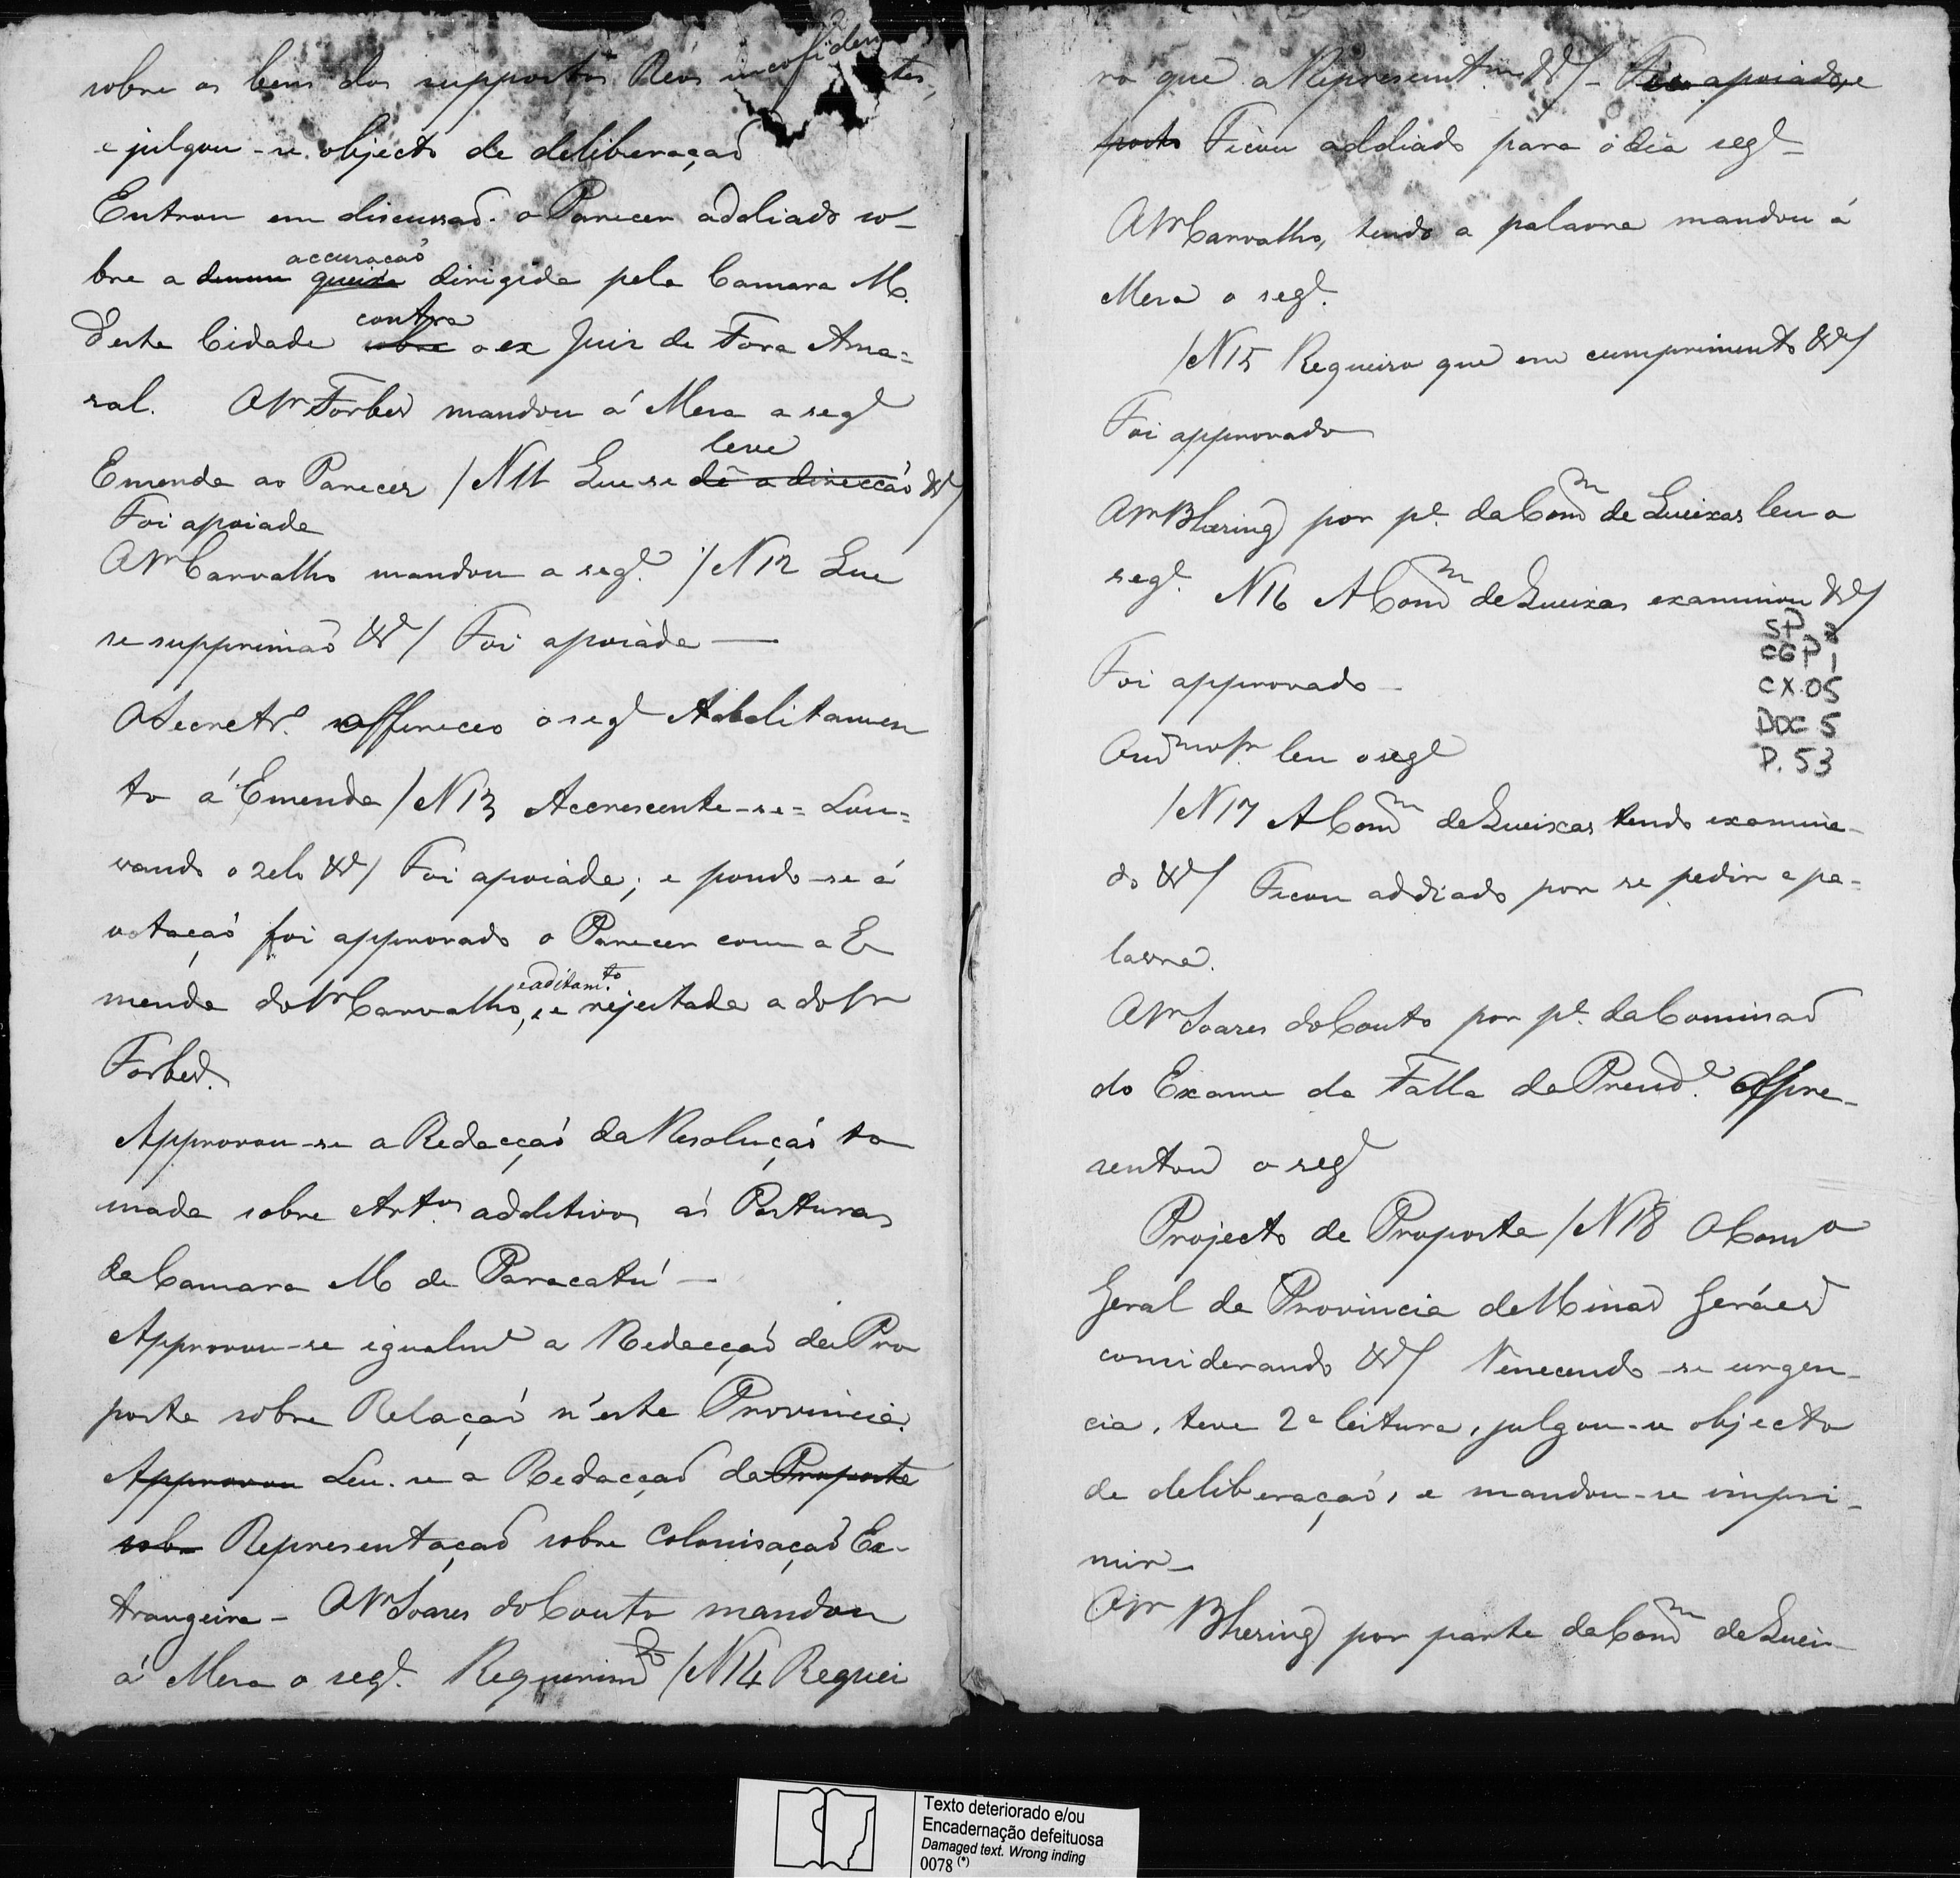 sobre os bens dos suppostos Reos inconfidentes,
e julgou-se objecto de deliberaçaõ
Entrou em discussaõ o Parecer addiado so-
accusaçaõ
bre a denun queixa dirigida pela Camara M.
contra
desta Cidade sobre o ex Juis de Fora Ama=
ral. O Sr Forbes mandou á Mesa a segᵉ
leve
Emenda ao Parecer /N 11 Que se dê a direcçaõ &ᵃ/
Foi apoiada
O Sr Carvalho mandou a segᵉ. /N 12 Que
se supprimaõ &ᵃ/ Foi apoiada —
O Secretrᵒ. offereceo o segᵉ Additamen
to á Emenda /N 13 Accrescente-se = Lou=
vando o zelo &ᵃ/ Foi apoiada; e pondo-se á
votaçaõ foi approvado o Parecer com a E
e aditamᵗᵒ.
menda do Sr Carvalho, e rejeitada a do Sr
Forbes.
Approvou-se a Redacçaõ da Resoluçaõ to
mada sobre Artᵒˢ. additivos ás Posturas
da Camara M de Paracatú —
Approvou-se igualmᵉ a Redacçaõ da Pro
posta sobre Relaçaõ n'esta Provincia.
Approvou Leu-se a Redacçaõ da Proposta
sobre Representaçaõ sobre Colonisaçaõ Es-
trangeira - O Sr Soares do Couto mandou
á Mesa o segᵉ. Requerimᵗᵒ /N 14 Requei
ro que a Representᵃᵐ &ᵃ/ - Foi apoiado, e
posto Ficou addiado para o dia segᵉ =
O Sr Carvalho, tendo a palavra mandou á
Mesa o segᵉ.
/N 15 Requeiro que em cumprimento &ᵃ/
Foi approvado
O Sr Bhering por pᵉ. da Comᵐ de Queixas leu o
segᵉ. N 16 A Comᵐ de Queixas examinou &ᵃ/
SP 2
CGP 1
CX. 05
DOC 5
P. 53
Foi approvado -
O mᵐᵒ Sr. leu o segᵉ
/N 17 A Comᵐ de Queixas tendo examina-
do &ᵃ/ Ficou addiado por se pedir a pa=
lavra.
O Sr Soares do Couto por pᵉ. da Commissaõ
do Exame da Falla do Presidᵉ. Apre-
sentou o segᵉ
Projecto de Proposta /N 18 O Comᵒ
Geral da Provincia de Minas Geráes
considerando &ᵃ/ Vencendo-se urgen-
cia, teve 2ᵃ leitura, julgou-se objecto
de deliberaçaõ, e mandou-se impri-
mir -
O Sr Bhering por parte da Comᵐ de Quei-
Texto deteriorado e/ou
Encadernação defeituosa
Damaged text. Wrong inding
0078 (*)